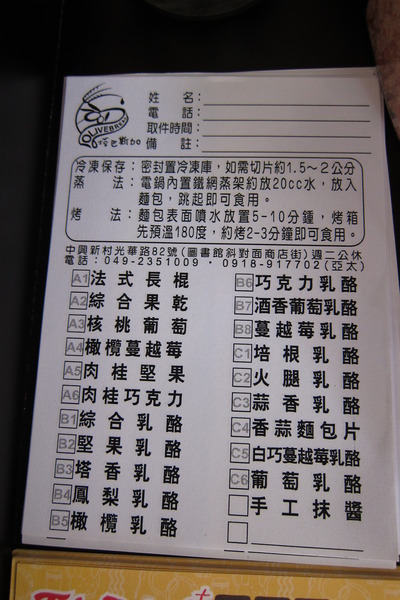 OLIVEBREAD
姓 名：
電 話：
取件時間：
備 註：
冷凍保存：密封置冷凍庫，如需切片約1.5～2公分
蒸 法：電鍋內置鐵網蒸架約放20cc水，放入
麵包，跳起即可食用。
烤 法：麵包表面噴水放置5-10分鐘，烤箱
先預溫180度，約烤2-3分鐘即可食用。
中興新村光華路82號(圖書館斜對面商店街)週二公休
電話：049-2351009 · 0918-917702(亞太)
A1 法式長棍
A2 綜合果乾
A3 核桃葡萄
A4 橄欖蔓越莓
A5 肉桂堅果
A6 肉桂巧克力
B1 綜合乳酪
B2 堅果乳酪
B3 塔香乳酪
B4 鳳梨乳酪
B5 橄欖乳酪
B6 巧克力乳酪
B7 酒香葡萄乳酪
B8 蔓越莓乳酪
C1 培根乳酪
C2 火腿乳酪
C3 蒜香乳酪
C4 香蒜麵包片
C5 白巧蔓越莓乳酪
C6 葡萄乳酪
手工抹醬